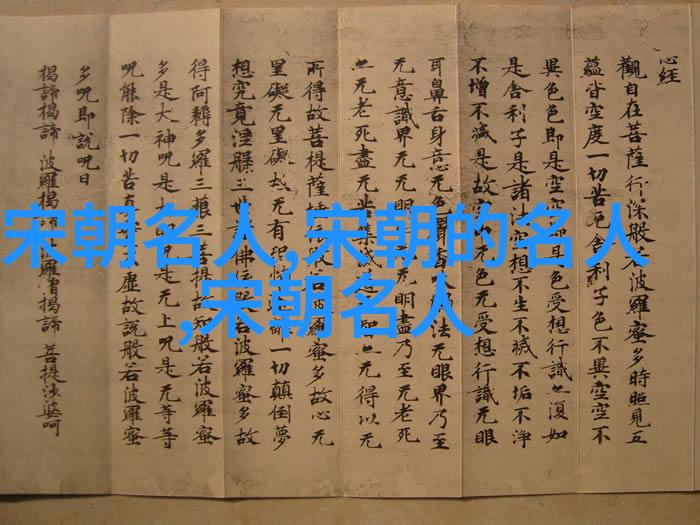 心经
觀自在菩薩行深般若波羅蜜多時照見五
蘊皆空度一切苦厄舍利子色不異空空不
異色色即是空空即是色受想行識亦復如
是舍利子是諸法空想不生不滅不垢不淨
不增不減是故空无色无受想行識无眼
耳鼻舌身意无色聲香味法无眼界乃至
无意識界无无明无明盡乃至无老死
亦无老死盡无苦集滅亦无得以无
所得故菩提薩埵般若波羅蜜多故心无
罣礙无罣礙故无有恐一切顛倒夢
想究竟涅槃三世佛依般若波羅蜜多故
得阿耨多羅三藐三菩提故知般若波羅蜜
多是大神呪是大明呪是无上呪是无等等
呪能除一切苦不虛故說般若波羅蜜
多呪即說呪曰
揭諦揭諦 波羅揭諦 波羅僧揭諦 菩提莎婆呵
宋朝名人,宋朝的名人
,宋朝名人